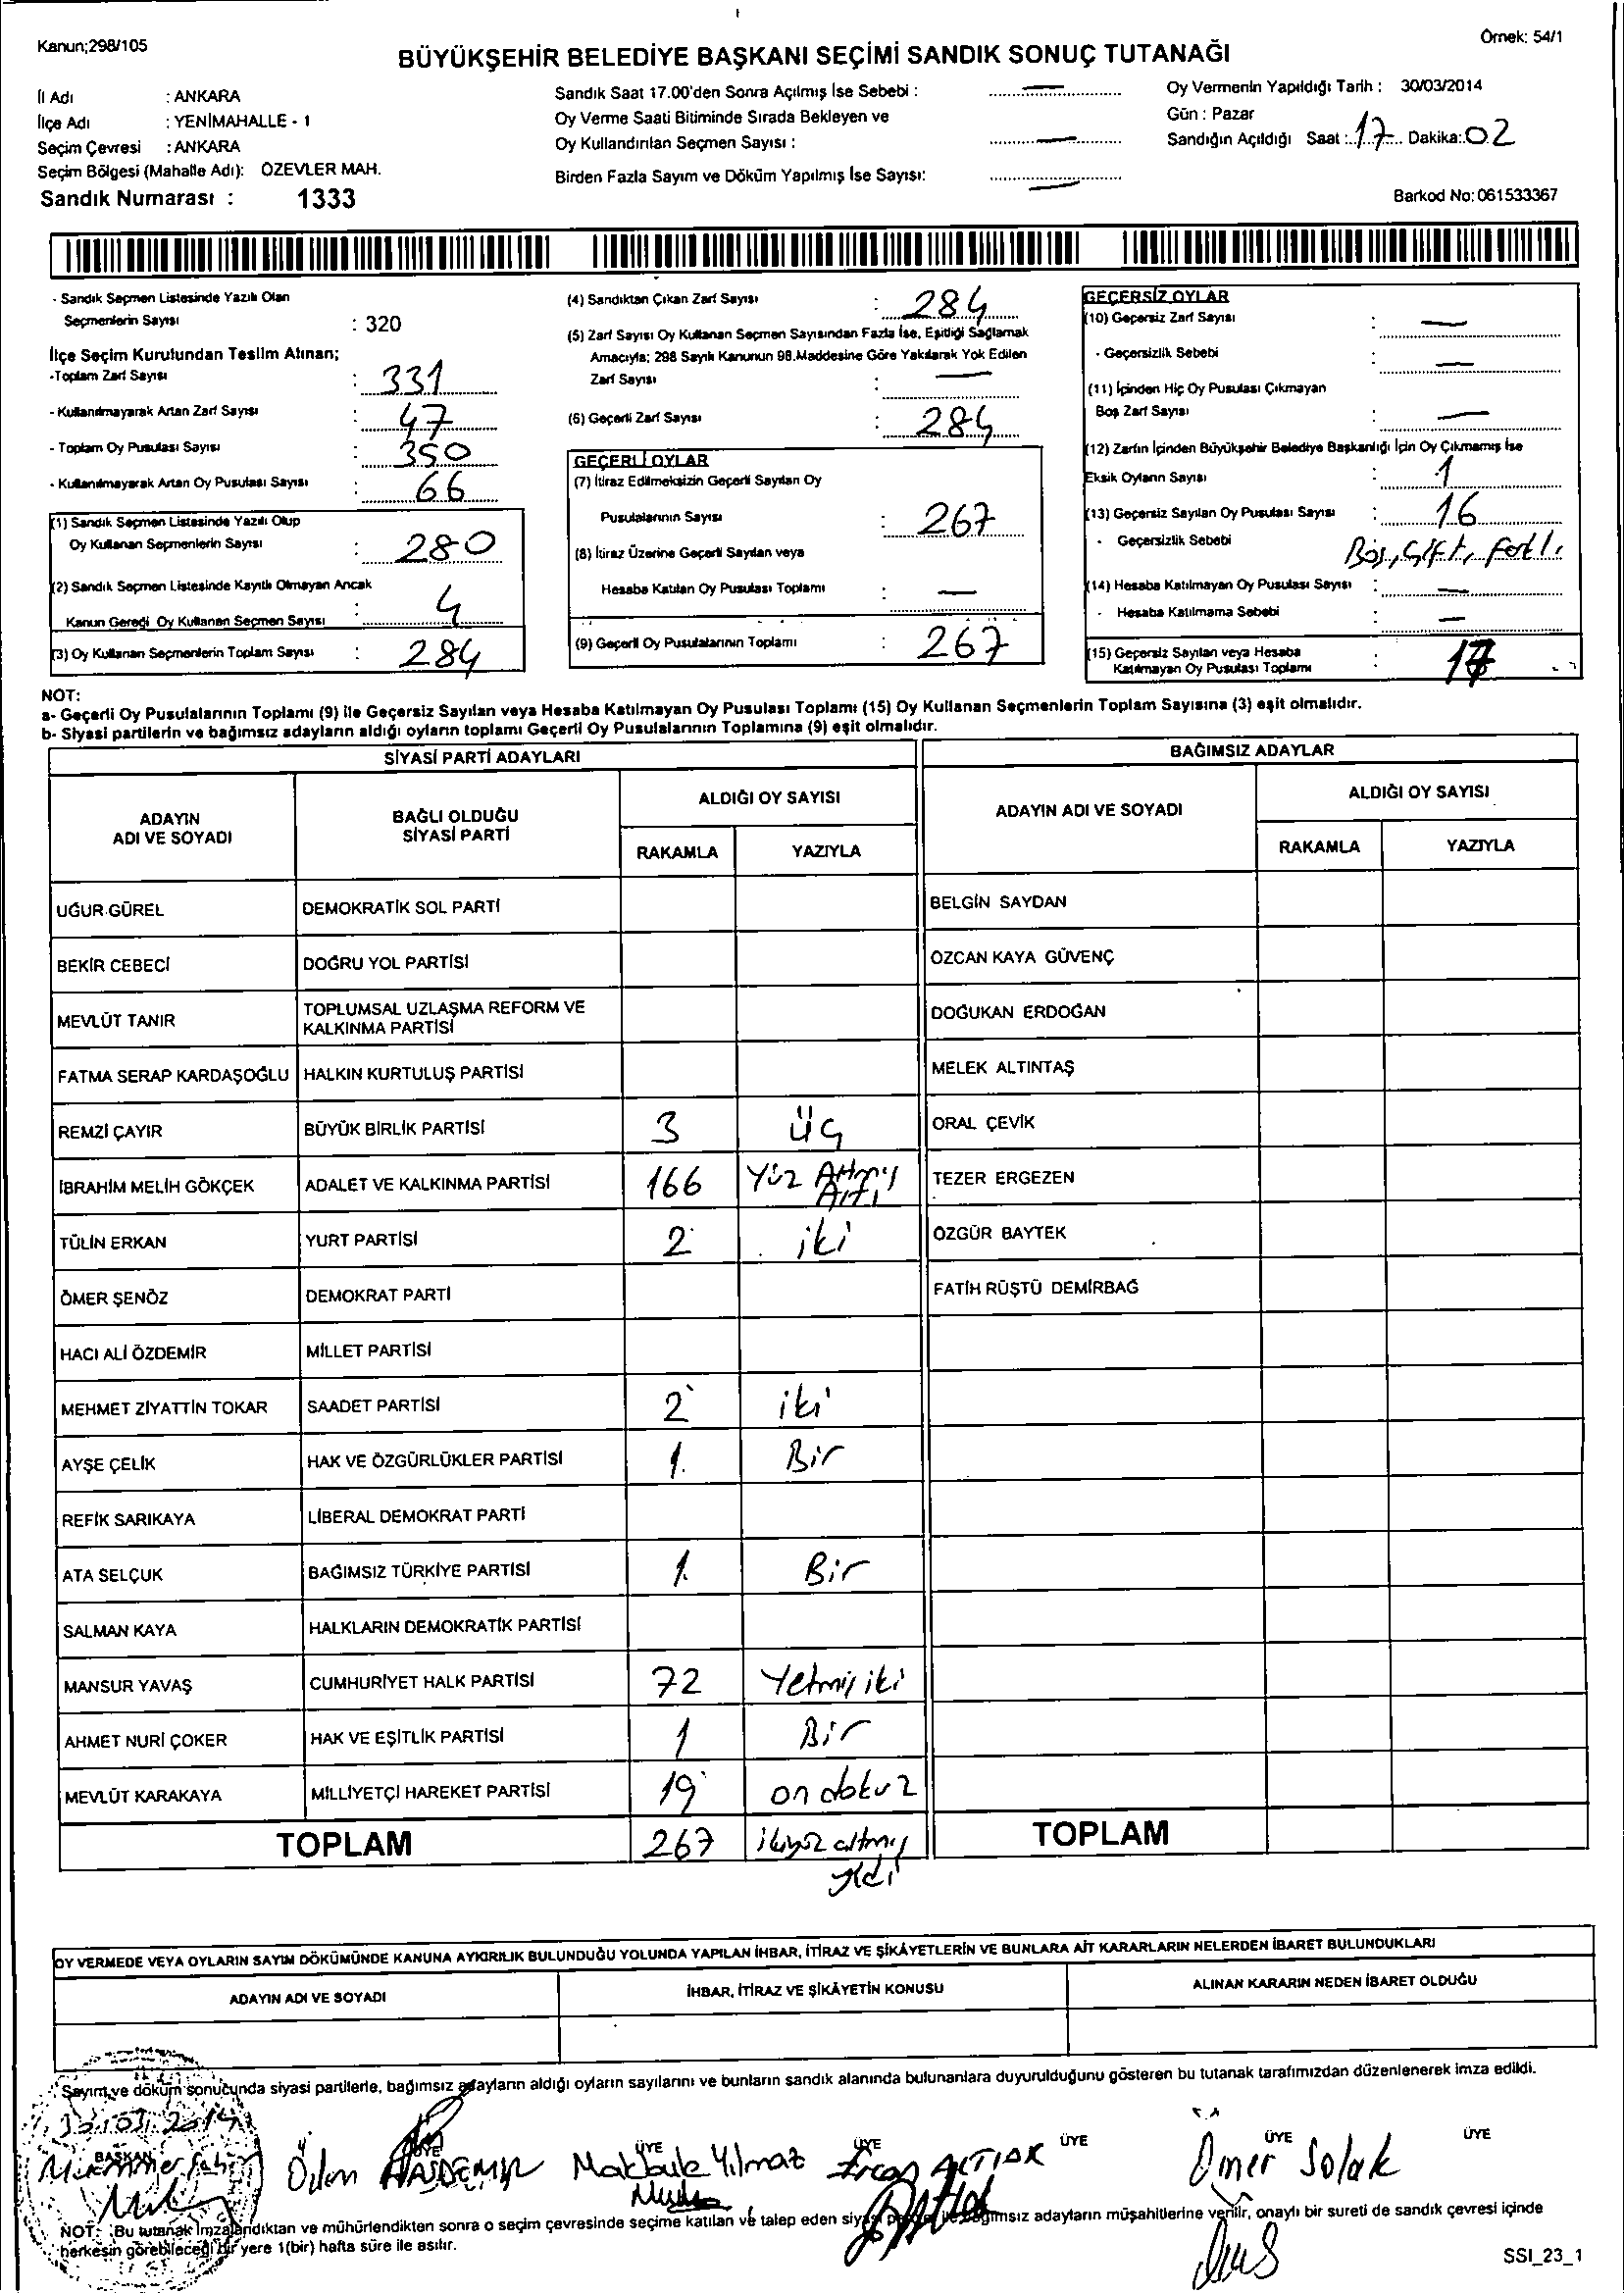 Kanun;298/105
Örnek: 54/1
BÜYÜKŞEHİR BELEDİYE BAŞKANI SEÇİMİ SANDIK SONUÇ TUTANAĞI
İl Adı : ANKARA
İlçe Adı : YENİMAHALLE - 1
Seçim Çevresi : ANKARA
Seçim Bölgesi (Mahalle Adı): ÖZEVLER MAH.
Sandık Numarası : 1333
Sandık Saat 17.00'den Sonra Açılmış İse Sebebi : —
Oy Verme Saati Bitiminde Sırada Bekleyen ve
Oy Kullandırılan Seçmen Sayısı : —
Birden Fazla Sayım ve Döküm Yapılmış İse Sayısı: —
Oy Vermenin Yapıldığı Tarih : 30/03/2014
Gün : Pazar
Sandığın Açıldığı Saat : 17 Dakika: 02
Barkod No: 061533367
- Sandık Seçmen Listesinde Yazılı Olan
Seçmenlerin Sayısı : 320
İlçe Seçim Kurulundan Teslim Alınan;
-Toplam Zarf Sayısı : 331
- Kullanılmayarak Artan Zarf Sayısı : 47
- Toplam Oy Pusulası Sayısı : 350
- Kullanılmayarak Artan Oy Pusulası Sayısı : 66
(1) Sandık Seçmen Listesinde Yazılı Olup
Oy Kullanan Seçmenlerin Sayısı : 280
(2) Sandık Seçmen Listesinde Kayıtlı Olmayan Ancak
Kanun Gereği Oy Kullanan Seçmen Sayısı : 4
(3) Oy Kullanan Seçmenlerin Toplam Sayısı : 284
(4) Sandıktan Çıkan Zarf Sayısı : 284
(5) Zarf Sayısı Oy Kullanan Seçmen Sayısından Fazla İse, Eşitliği Sağlamak
Amacıyla; 298 Sayılı Kanunun 98.Maddesine Göre Yakılarak Yok Edilen
Zarf Sayısı : —
(6) Geçerli Zarf Sayısı : 284
GEÇERLİ OYLAR
(7) İtiraz Edilmeksizin Geçerli Sayılan Oy
Pusulalarının Sayısı : 267
(8) İtiraz Üzerine Geçerli Sayılan veya
Hesaba Katılan Oy Pusulası Toplamı : —
(9) Geçerli Oy Pusulalarının Toplamı : 267
GEÇERSİZ OYLAR
(10) Geçersiz Zarf Sayısı : —
- Geçersizlik Sebebi : —
(11) İçinden Hiç Oy Pusulası Çıkmayan
Boş Zarf Sayısı : —
(12) Zarfın İçinden Büyükşehir Belediye Başkanlığı İçin Oy Çıkmamış İse
Eksik Oyların Sayısı : 1
(13) Geçersiz Sayılan Oy Pusulası Sayısı : 16
- Geçersizlik Sebebi Boş, Çift,
(14) Hesaba Katılmayan Oy Pusulası Sayısı : —
- Hesaba Katılmama Sebebi : —
(15) Geçersiz Sayılan veya Hesaba
Katılmayan Oy Pusulası Toplamı : 17
NOT:
a- Geçerli Oy Pusulalarının Toplamı (9) ile Geçersiz Sayılan veya Hesaba Katılmayan Oy Pusulası Toplamı (15) Oy Kullanan Seçmenlerin Toplam Sayısına (3) eşit olmalıdır.
b- Siyasi partilerin ve bağımsız adayların aldığı oyların toplamı Geçerli Oy Pusulalarının Toplamına (9) eşit olmalıdır.
SİYASİ PARTİ ADAYLARI
BAĞIMSIZ ADAYLAR
ADAYIN ADI VE SOYADI
BAĞLI OLDUĞU SİYASİ PARTİ
ALDIĞI OY SAYISI
RAKAMLA YAZIYLA
ADAYIN ADI VE SOYADI
ALDIĞI OY SAYISI
RAKAMLA YAZIYLA
UĞUR GÜREL DEMOKRATİK SOL PARTİ BELGİN SAYDAN
BEKİR CEBECİ DOĞRU YOL PARTİSİ ÖZCAN KAYA GÜVENÇ
MEVLÜT TANIR TOPLUMSAL UZLAŞMA REFORM VE KALKINMA PARTİSİ DOĞUKAN ERDOĞAN
FATMA SERAP KARDAŞOĞLU HALKIN KURTULUŞ PARTİSİ MELEK ALTINTAŞ
REMZİ ÇAYIR BÜYÜK BİRLİK PARTİSİ 3 üç ORAL ÇEVİK
İBRAHİM MELİH GÖKÇEK ADALET VE KALKINMA PARTİSİ 166 Yüz Atmış Altı TEZER ERGEZEN
TÜLİN ERKAN YURT PARTİSİ 2 iki ÖZGÜR BAYTEK
ÖMER ŞENÖZ DEMOKRAT PARTİ FATİH RÜŞTÜ DEMİRBAĞ
HACI ALİ ÖZDEMİR MİLLET PARTİSİ
MEHMET ZİYATTİN TOKAR SAADET PARTİSİ 2 iki
AYŞE ÇELİK HAK VE ÖZGÜRLÜKLER PARTİSİ 1 Bir
REFİK SARIKAYA LİBERAL DEMOKRAT PARTİ
ATA SELÇUK BAĞIMSIZ TÜRKİYE PARTİSİ 1 Bir
SALMAN KAYA HALKLARIN DEMOKRATİK PARTİSİ
MANSUR YAVAŞ CUMHURİYET HALK PARTİSİ 72 Yetmiş iki
AHMET NURİ ÇOKER HAK VE EŞİTLİK PARTİSİ 1 Bir
MEVLÜT KARAKAYA MİLLİYETÇİ HAREKET PARTİSİ 19 on dokuz
TOPLAM 267 ikiyüz altmış yedi TOPLAM
OY VERMEDE VEYA OYLARIN SAYIM DÖKÜMÜNDE KANUNA AYKIRILIK BULUNDUĞU YOLUNDA YAPILAN İHBAR, İTİRAZ VE ŞİKÂYETLERİN VE BUNLARA AİT KARARLARIN NELERDEN İBARET BULUNDUKLARI
ADAYIN ADI VE SOYADI İHBAR, İTİRAZ VE ŞİKÂYETİN KONUSU ALINAN KARARIN NEDEN İBARET OLDUĞU
Sayım ve döküm sonucunda siyasi partilerle, bağımsız adayların aldığı oyların sayılarını ve bunların sandık alanında bulunanlara duyurulduğunu gösteren bu tutanak tarafımızdan düzenlenerek imza edildi.
30.03.2014
BAŞKAN ÜYE ÜYE ÜYE ÜYE ÜYE ÜYE
Makbule Yılmaz Ercan Ömer Solak
NOT: Bu tutanak imzalandıktan ve mühürlendikten sonra o seçim çevresinde seçime katılan ve talep eden siyasi bağımsız adayların müşahitlerine verilir, onaylı bir sureti de sandık çevresi içinde
herkesin görebileceği bir yere 1(bir) hafta süre ile asılır.
SSI_23_1